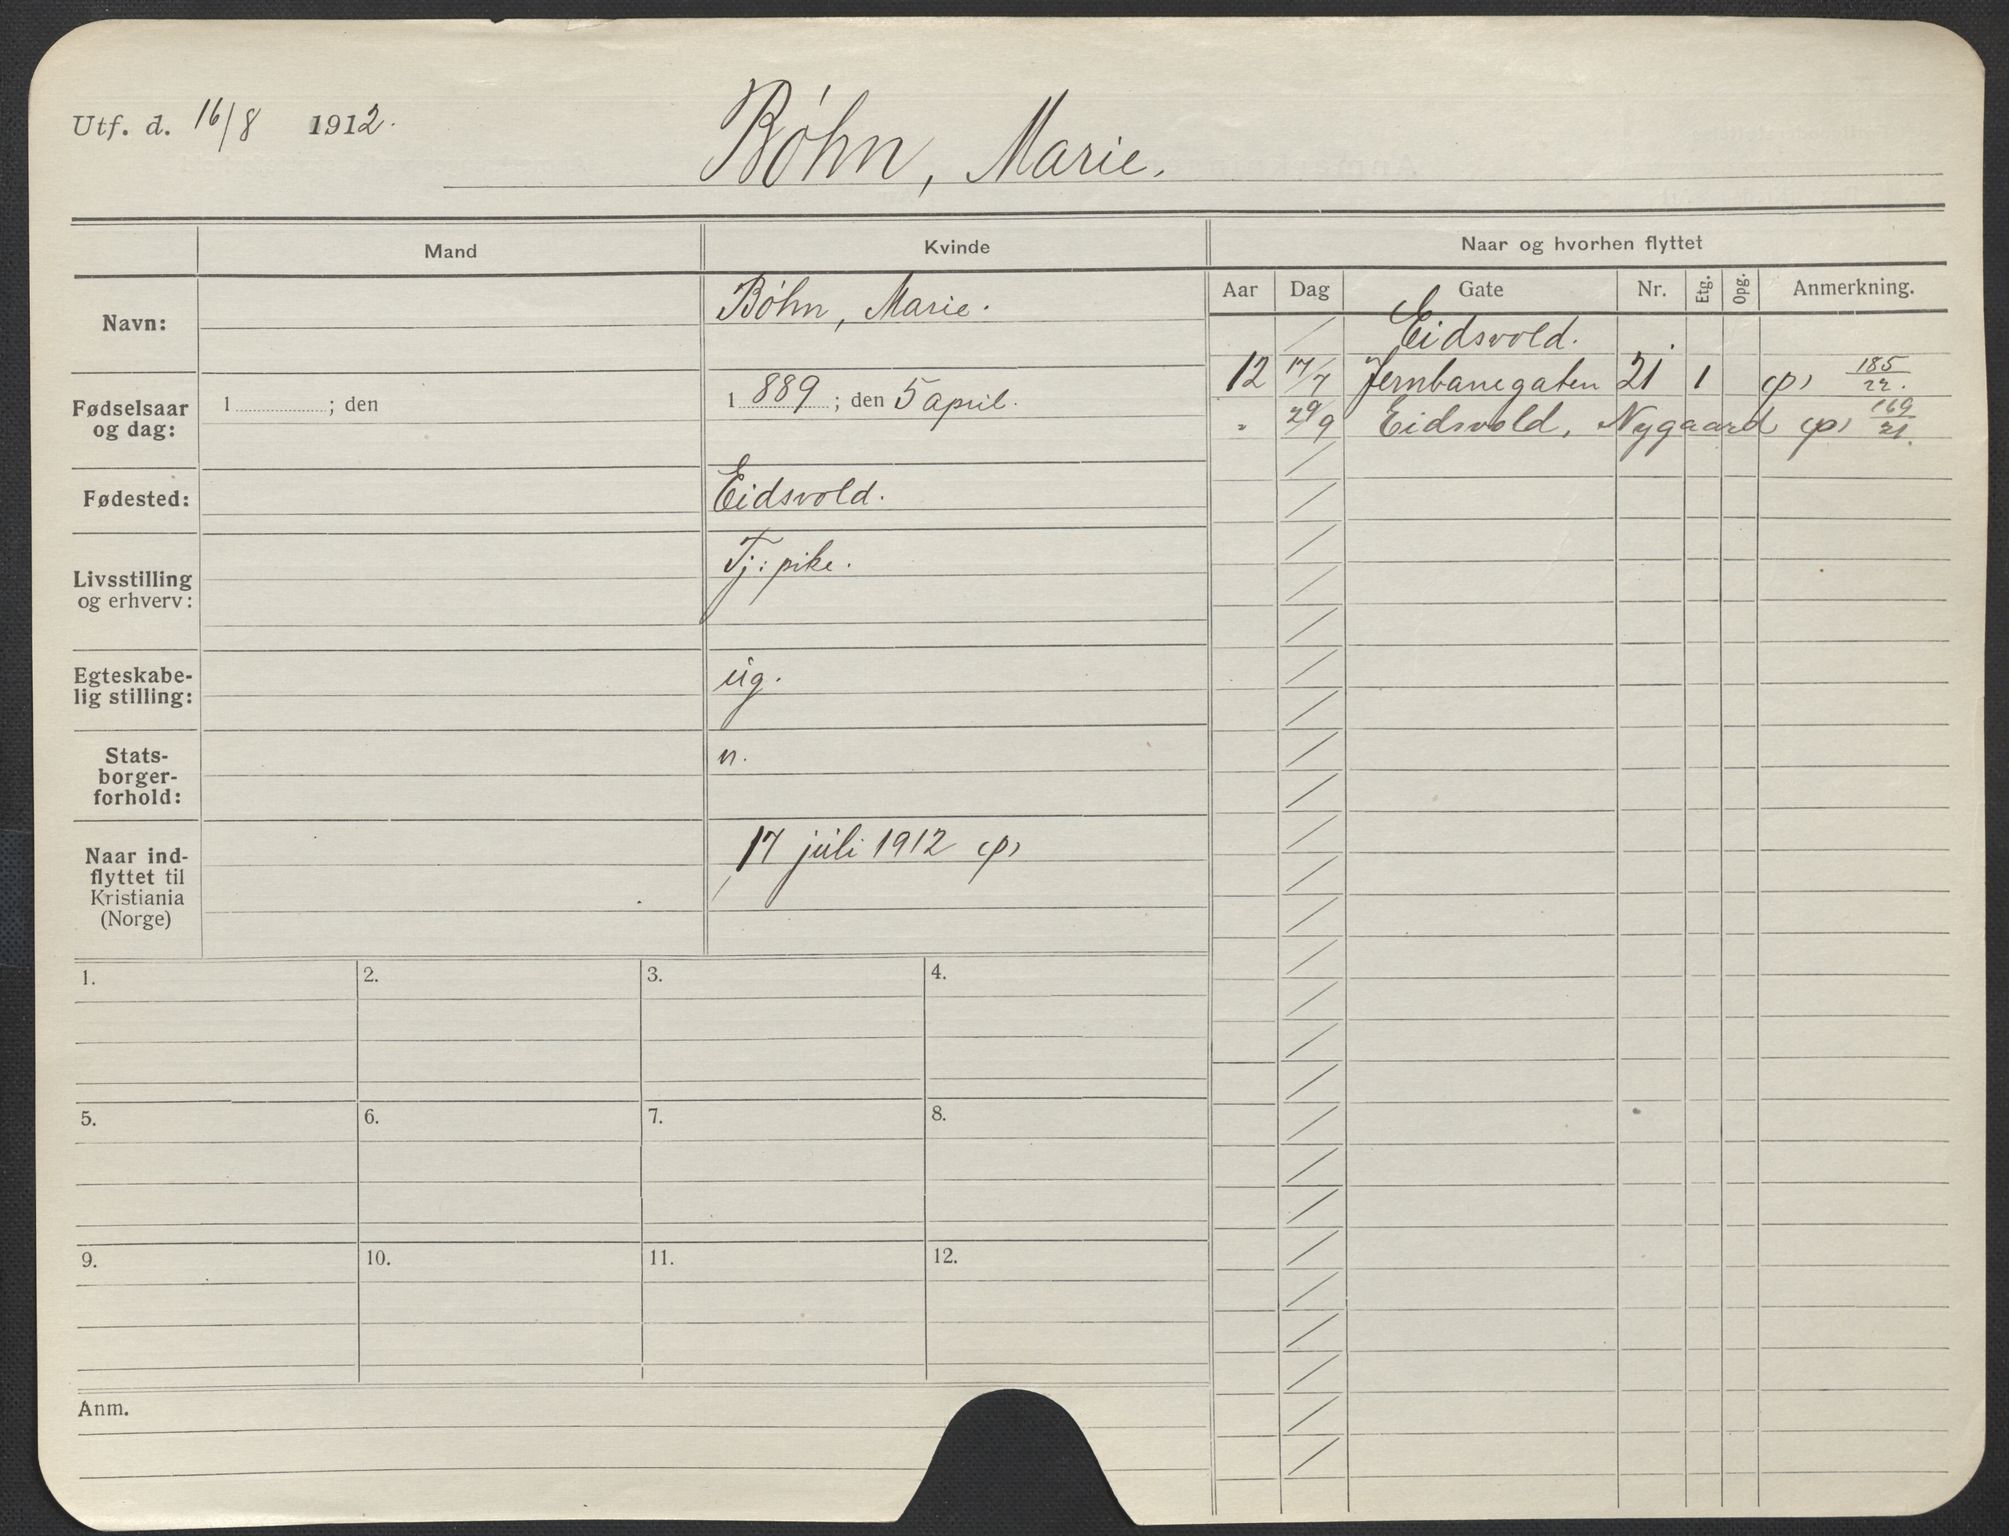 Utf. d. 16/8 1912.
Bøhn, Marie.
Mand
Kvinde
Naar og hvorhen flyttet
Aar Dag Gate Nr. Etg. Opg. Anmerkning.
Navn:
Bøhn, Marie.
Fødselsaar
og dag:
1 ; den
1 889 ; den 5 april.
Fødested:
Eidsvold.
Livsstilling
og erhverv:
Tj: pike.
Egteskabe-
lig stilling:
ug.
Stats-
borger-
forhold:
n.
Naar ind-
flyttet til
Kristiania
(Norge)
17 juli 1912 (p)
Eidsvold.
12 17/7 Jernbanegaten 21 1 (p) 185/22.
" 29/9 Eidsvold, Nygaard (p) 169/21.
1. 2. 3. 4.
5. 6. 7. 8.
9. 10. 11. 12.
Anm.